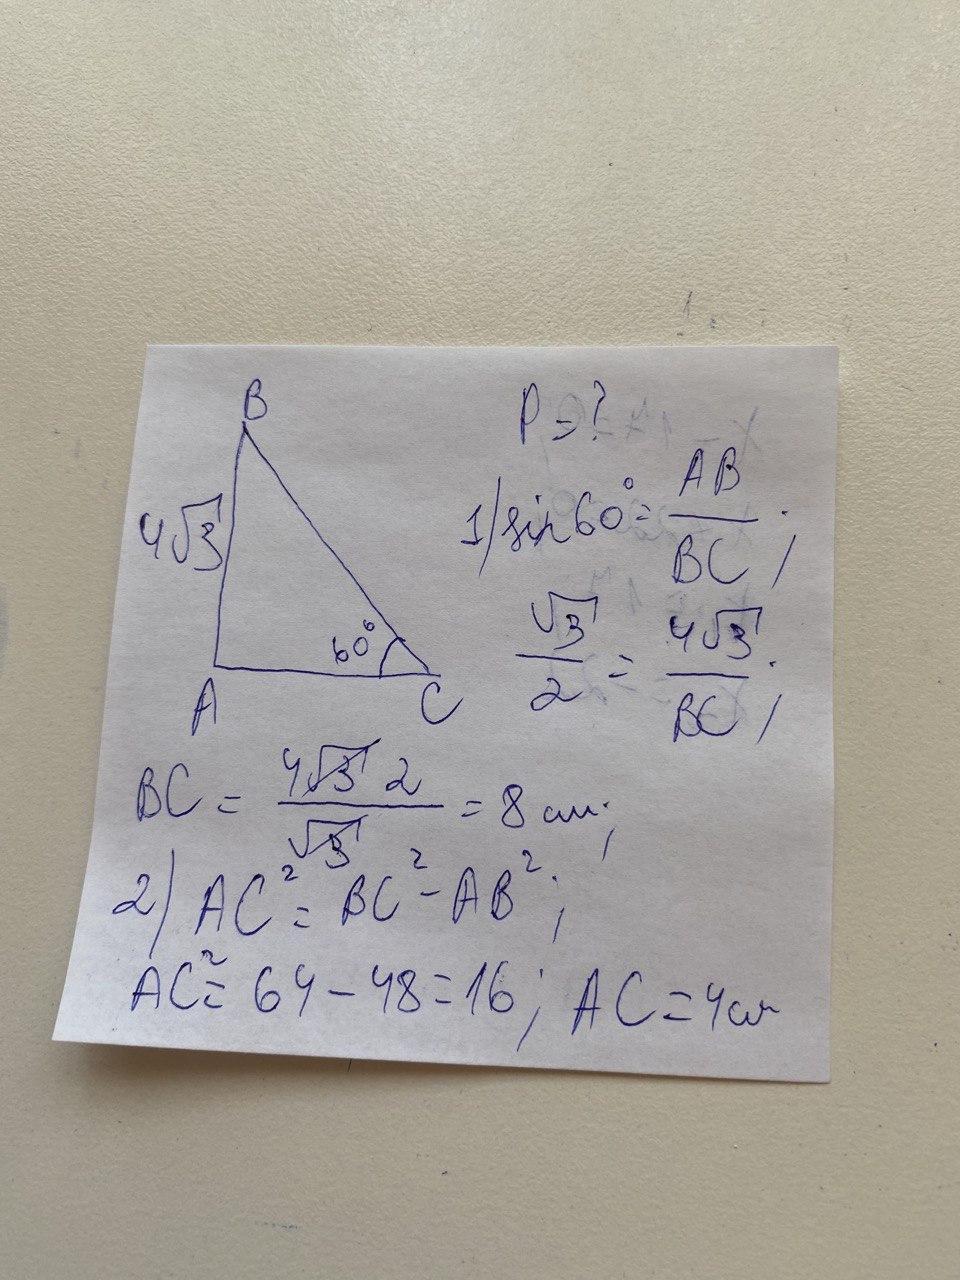 B
P = ?
4√3
1) sin 60° = AB / BC ;
60°
√3 / 2 = 4√3 / BC ;
A C
BC = 4√3 2 / √3 = 8 см;
2) AC² = BC² - AB² ;
AC² = 64 - 48 = 16 ; AC = 4 см